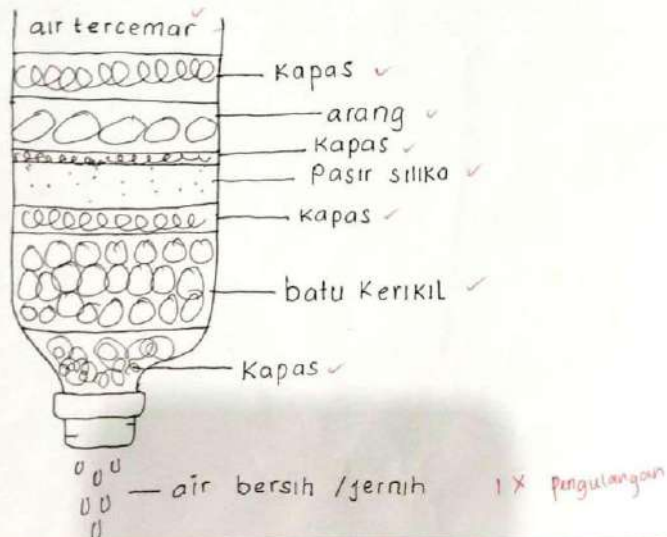 air tercemar
Kapas
arang
Kapas
Pasir silika
Kapas
batu Kerikil
Kapas
air bersih / jernih
1 x pengulangan